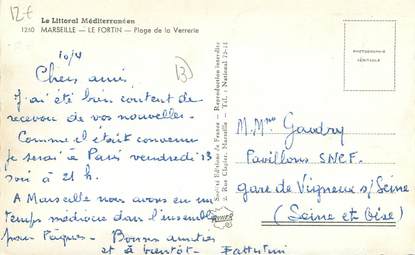 12€
Le Littoral Méditerranéen
1260 MARSEILLE — LE FORTIN — Plage de la Verrerie
10/4
Chers amis,
J'ai été bien content de
recevoir de vos nouvelles.
Comme il était convenu
je serai à Paris vendredi 13
soir à 21 h.
A Marseille nous avons eu un
temps médiocre dans l'ensemble
pour Pâques. Bonnes amitiés
et à bientôt.
Société Editions de France - Reproduction interdite
2, Rue Clapier, Marseille - Tél.: National 12-15
PHOTOGRAPHIE
VÉRITABLE
M. Mme Gaudry
Pavillons SNCF.
gare de Vigneux s/Seine
(Seine et Oise)